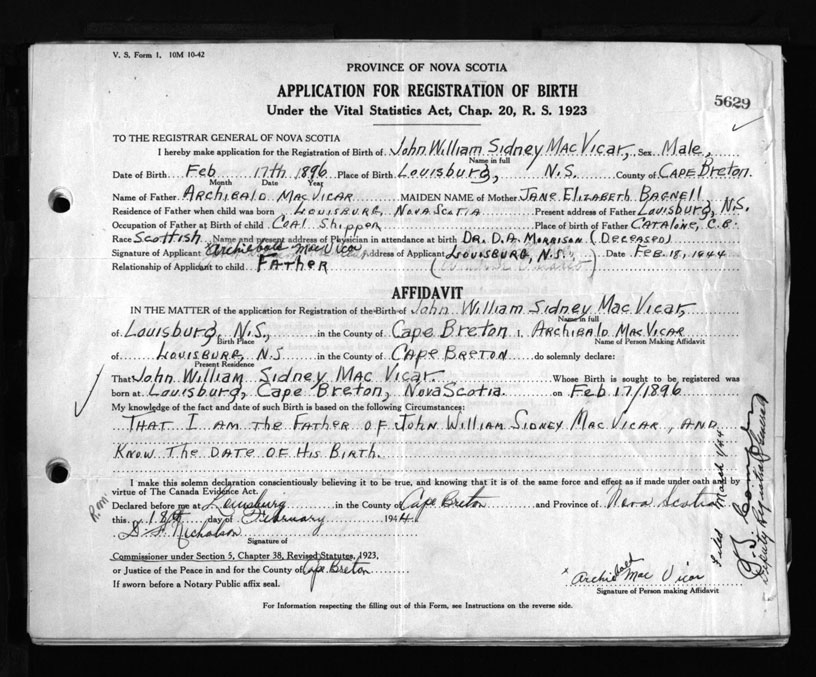 V. S. Form 1. 10M 10-42
PROVINCE OF NOVA SCOTIA
APPLICATION FOR REGISTRATION OF BIRTH
5629
Under the Vital Statistics Act, Chap. 20, R. S. 1923
TO THE REGISTRAR GENERAL OF NOVA SCOTIA
I hereby make application for the Registration of Birth of John William Sidney MacVicar, Sex Male,
Name in full
Date of Birth Feb 17th 1896 Place of Birth Louisburg, N.S. County of CAPE Breton.
Month Date Year
Name of Father ARCHIBALD MACVICAR MAIDEN NAME of Mother JANE ELIZABETH BAGNELL
Residence of Father when child was born LOUISBURG, NOVA SCOTIA Present address of Father Louisburg, N.S.
Occupation of Father at Birth of child COAL Shipper Place of birth of Father CATALONE, C.B.
Race Scottish Name and present address of Physician in attendance at birth DR. D.A. MORRISON (DECEASED)
Signature of Applicant Archibald MacVicar Address of Applicant LOUISBURG, N.S. Date FEB. 18, 1944
Relationship of Applicant to child FATHER
AFFIDAVIT
IN THE MATTER of the application for Registration of the Birth of John William Sidney MacVicar,
Name in full
of Louisburg, N.S., in the County of Cape Breton I, ARCHIBALD MACVICAR
Birth Place Name of Person Making Affidavit
of LOUISBURG, N.S in the County of CAPE BRETON do solemnly declare:
Present Residence
That John William Sidney MacVicar. Whose Birth is sought to be registered was
born at Louisburg, Cape Breton, Nova Scotia. on Feb 17/1896
My knowledge of the fact and date of such Birth is based on the following Circumstances:
THAT I AM THE FATHER OF JOHN WILLIAM SIDNEY MACVICAR, AND
KNOW THE DATE OF HIS BIRTH.
I make this solemn declaration conscientiously believing it to be true, and knowing that it is of the same force and effect as if made under oath and by
virtue of The Canada Evidence Act.
Declared before me at Louisburg in the County of Cape Breton and Province of Nova Scotia
this 18th day of February 1944
Nicholson
Signature of
Commissioner under Section 5, Chapter 38, Revised Statutes, 1923,
or Justice of the Peace in and for the County of Cape Breton
If sworn before a Notary Public affix seal.
x Archibald MacVicar
Signature of Person making Affidavit
For Information respecting the filling out of this Form, see Instructions on the reverse side.
Filed March 1/44
Deputy Registrar General